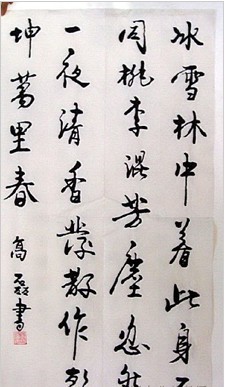 冰雪林中着此身不
同桃李混芳塵忽然
一夜清香發散作乾
坤萬里春
高磊書